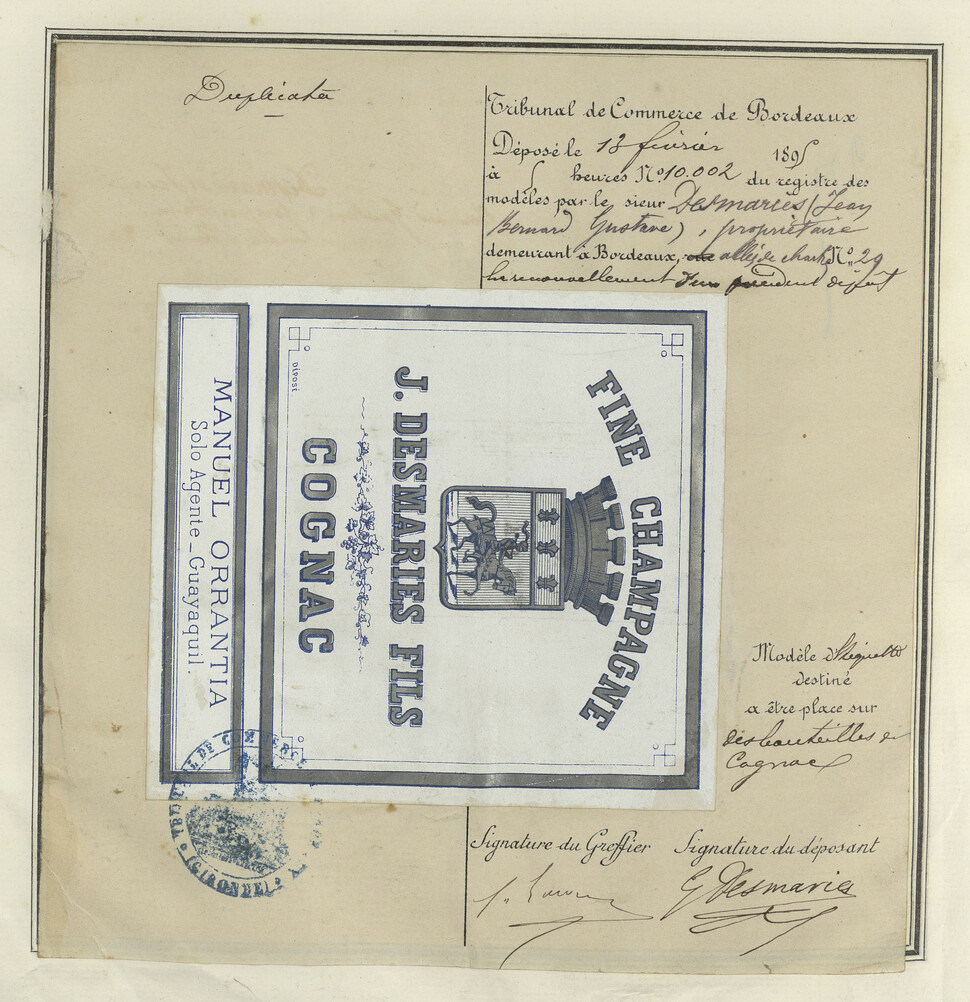 Duplicata
Tribunal de Commerce de Bordeaux
Déposé le 13 février 1895
à 5 heures No. 10.002 du registre des
modèles par le sieur Desmaries (Jean
Bernard Gustave), propriétaire
demeurant à Bordeaux, allée de No. 29
renouvellement d'un précédent dépôt
FINE CHAMPAGNE
J. DESMARIES FILS
COGNAC
DÉPOSÉ
MANUEL ORRANTIA
Solo Agente_Guayaquil.
Modèle d'étiquette
destiné
a être place sur
des bouteilles de
Cognac
TRIBUNAL DE COMMERCE
(GIRONDE)
Signature du Greffier Signature du déposant
G Desmaries